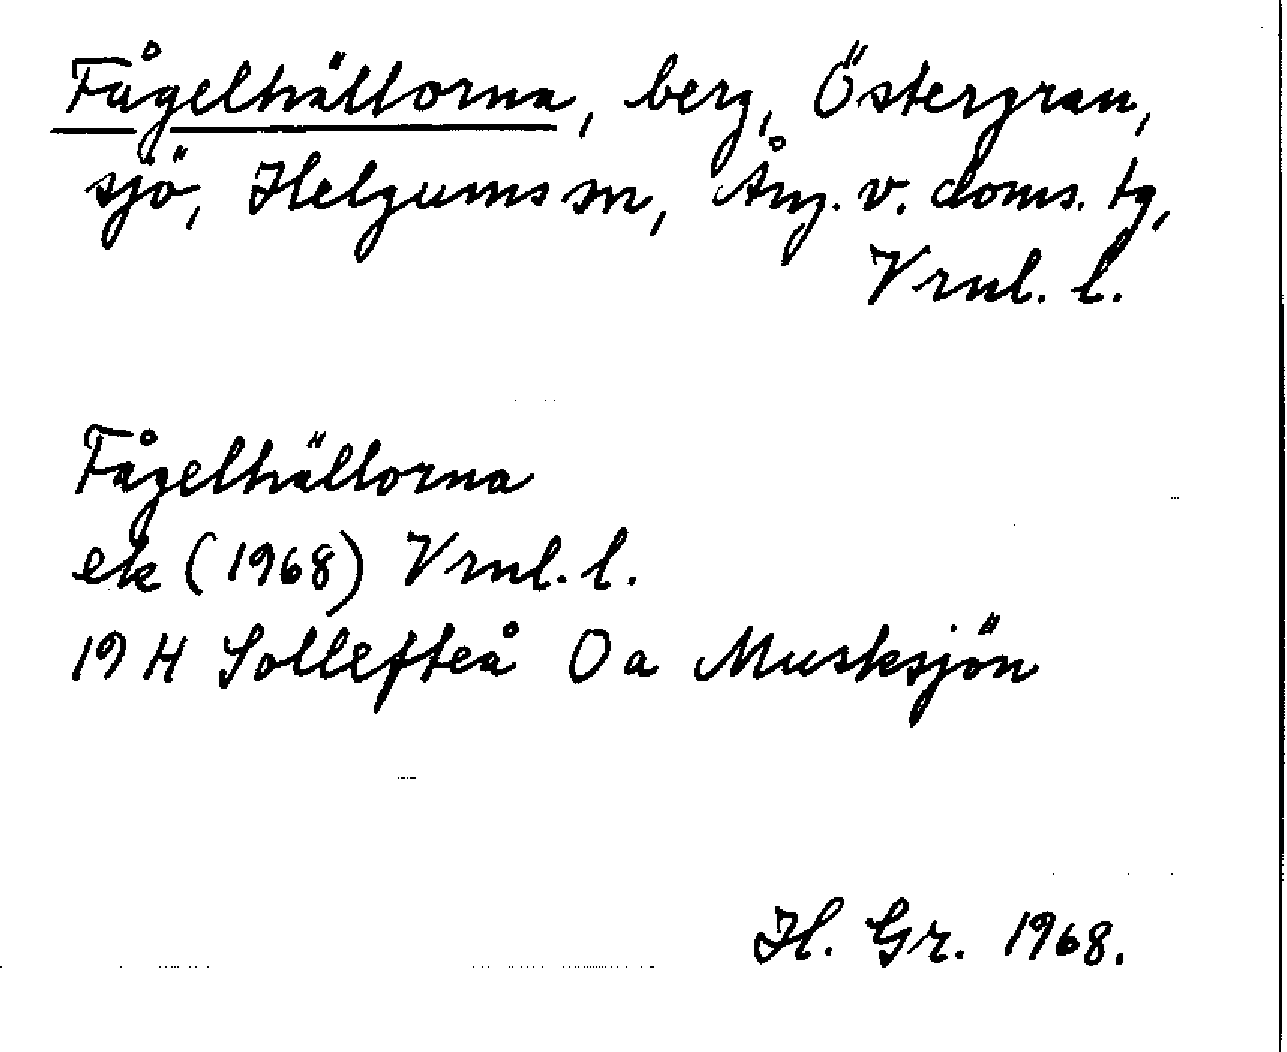 Fågelhällorna, berg, Östergran,
sjö, Helgums sn, Ång. v. doms. tg,
Vrnl. l.
Fågelhällorna
ek (1968) Vrnl. l.
19 H Sollefteå Oa Musksjön
H. Gr. 1968.